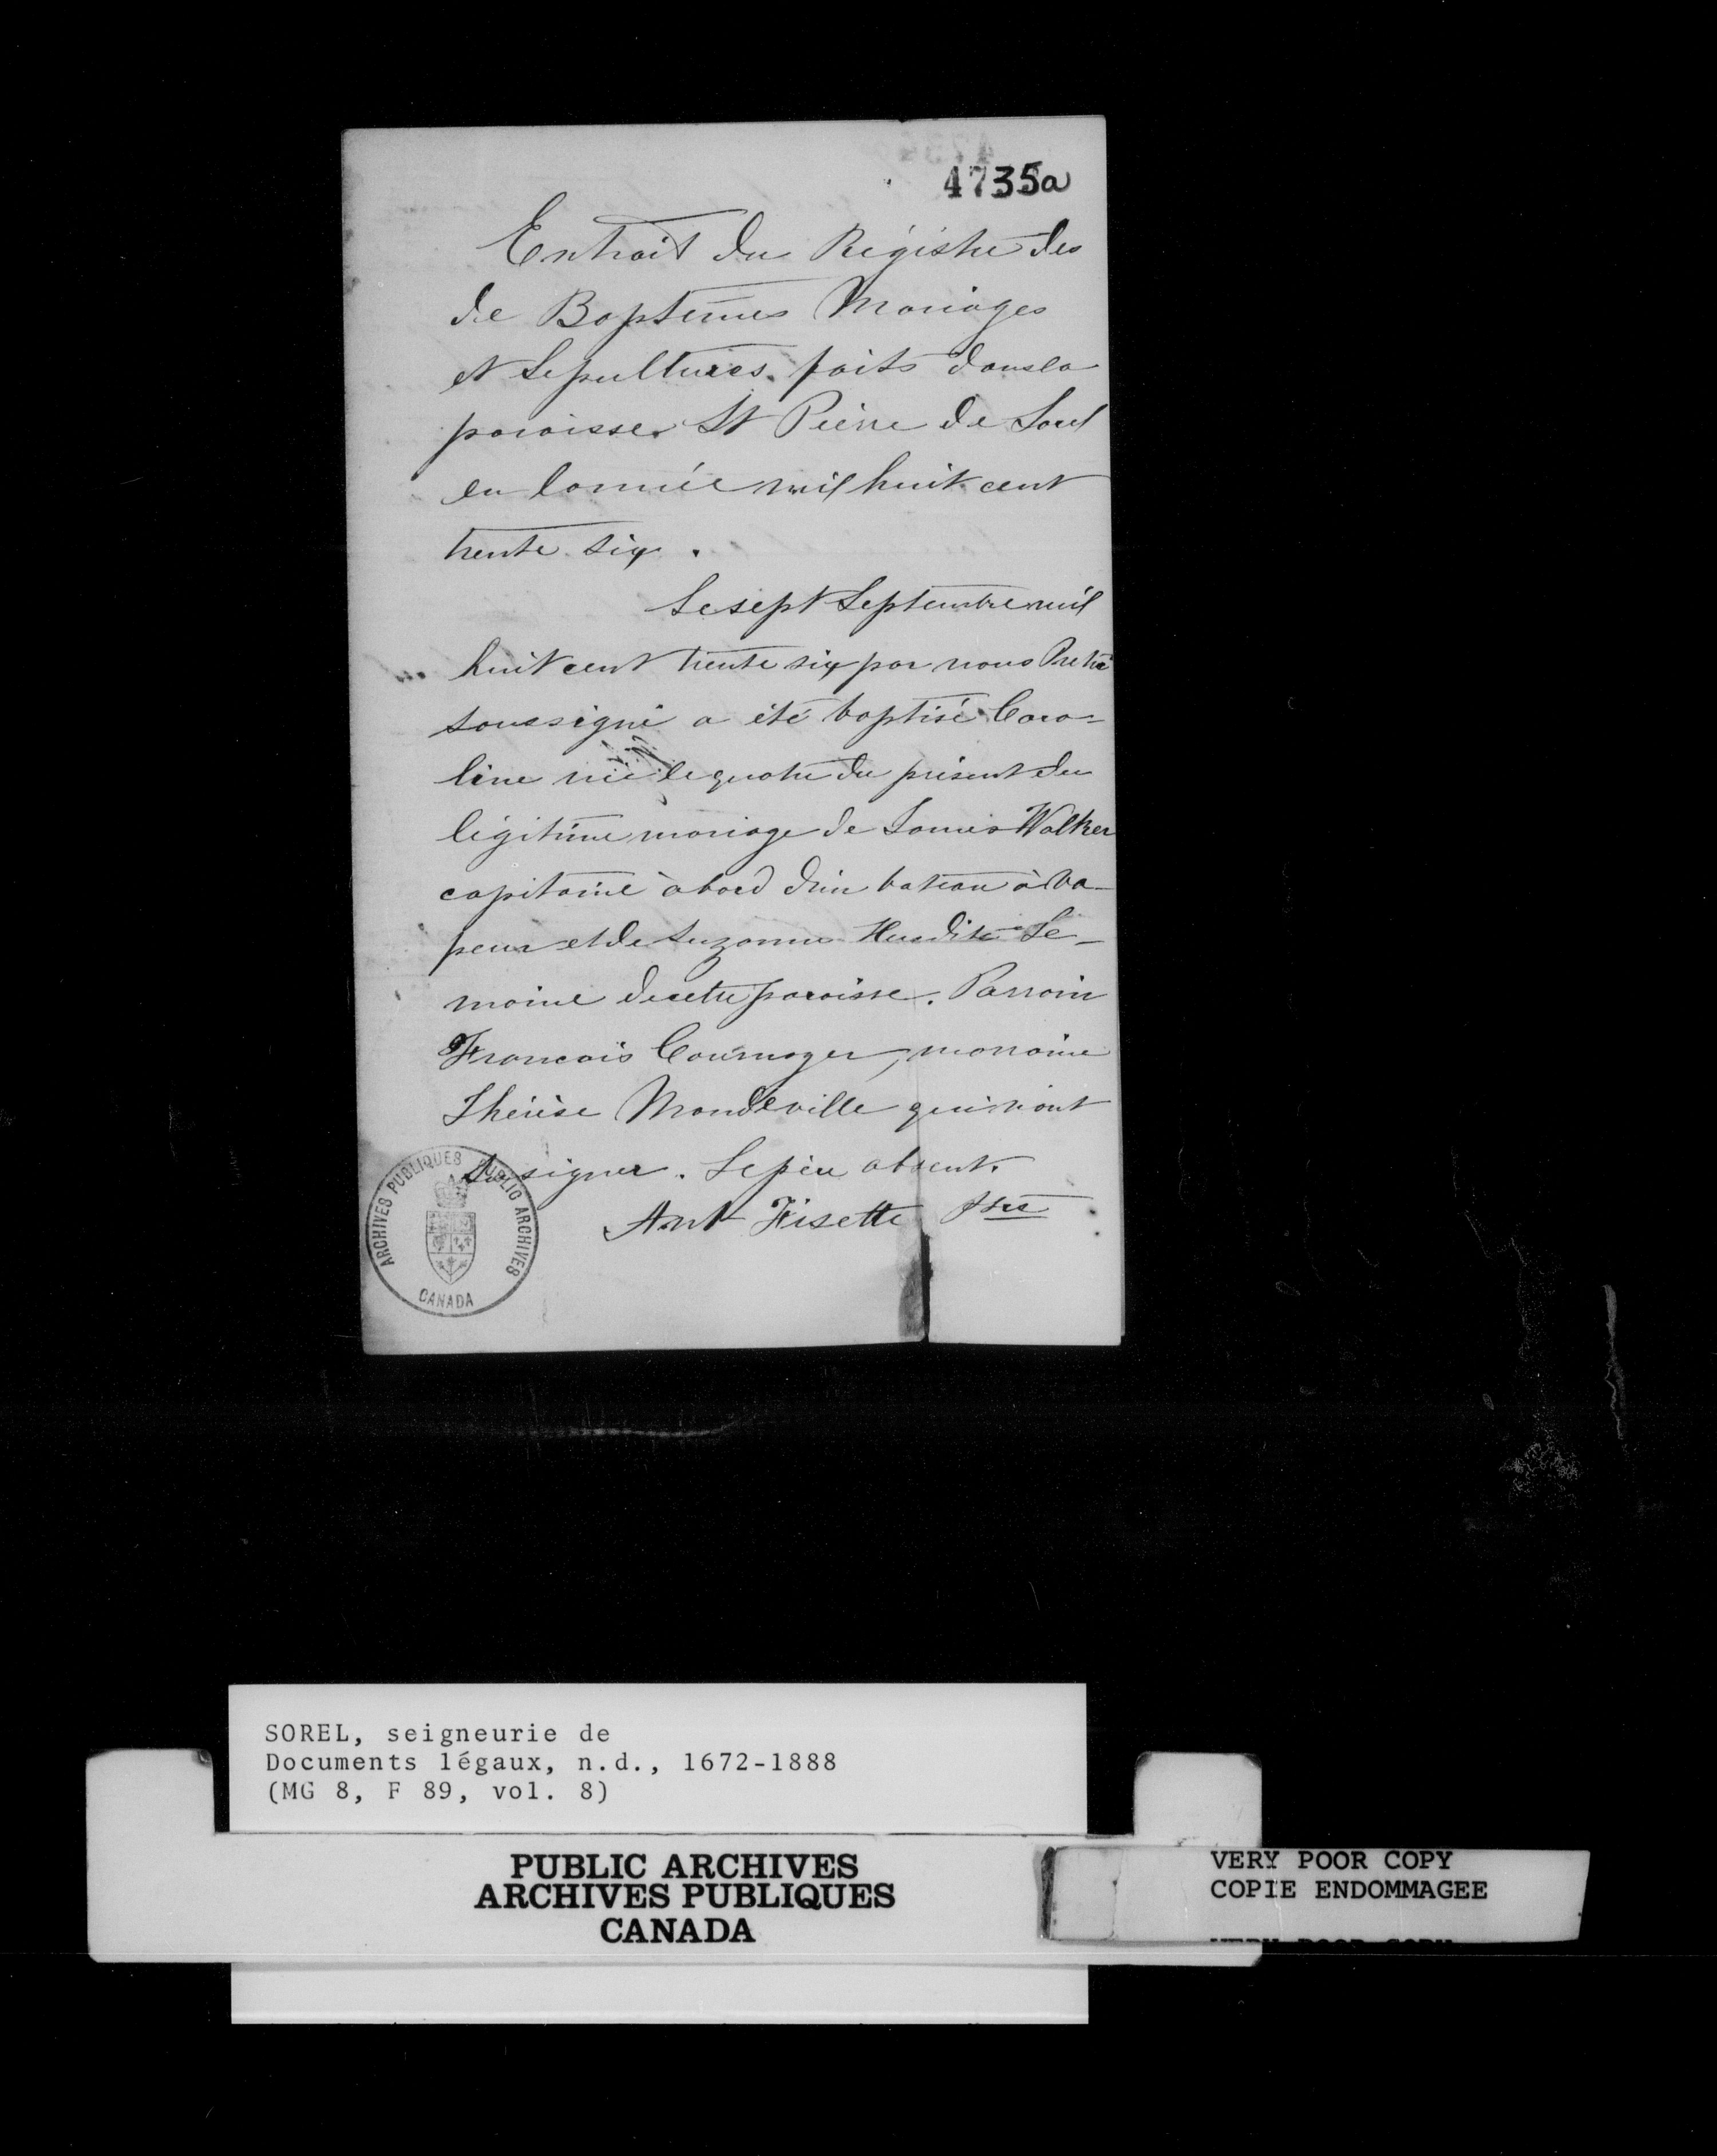 4735a
Extrait du Régistre des
de Baptêmes Mariages
et Sepultures faits dans la
paroisse St Pierre de Sorel
en l'année mil huit cent
trente six.
Le sept Septembre mil
huit cent trente six par nous Pretre
soussigné a été baptisé Caro=
line née le quatre du présent du
légitime mariage de James Walker
capitaine à bord d'un bateau à va-
peur et de Suzanne Hus dite Le-
moine de cette paroisse. Parrain
Francois Cournoyer, marraine
Thérèse Mandeville qui n'ont
su signer. Le père absent.
Ant Fisette Ptre
ARCHIVES PUBLIQUES PUBLIC ARCHIVES
CANADA
SOREL, seigneurie de
Documents légaux, n.d., 1672-1888
(MG 8, F 89, vol. 8)
PUBLIC ARCHIVES
ARCHIVES PUBLIQUES
CANADA
VERY POOR COPY
COPIE ENDOMMAGEE
VERY POOR COPY